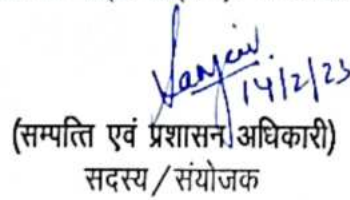 Sanjeev
14/2/23
(सम्पत्ति एवं प्रशासन अधिकारी)
सदस्य/संयोजक